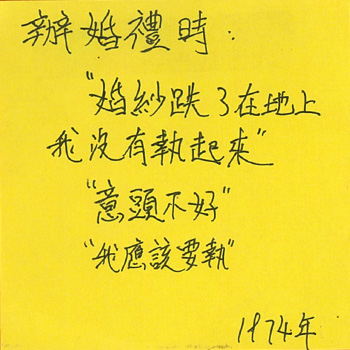 辦婚禮時:
"婚紗跌了在地上
我沒有執起來"
"意頭不好"
"我應該要執"
1974年